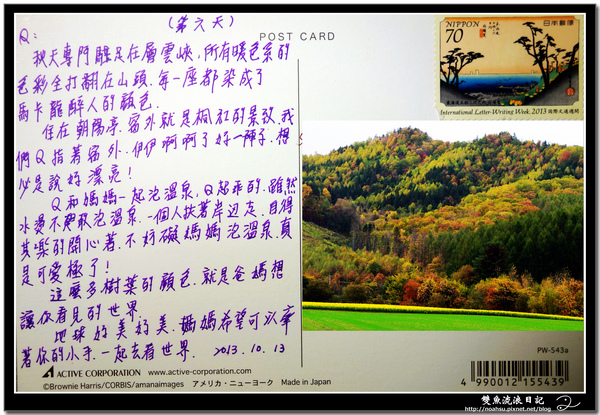 (第六天)
POST CARD
Q:
秋天專門駐足在層雲峽,所有暖色系的
色彩全打翻在山頭,每一座都染成了
馬卡龍醉人的顏色.
住在朝陽亭,窗外就是楓紅的景致,我
們Q指著窗外,伊伊啊啊了好一陣子,想
必是說好漂亮!
Q和媽媽一起泡溫泉,Q超乖的,雖然
水燙不敢泡溫泉,一個人扶著岸边走,自得
其樂的開心著,不妨礙媽媽泡溫泉,真
是可愛極了!
這麼多樹葉的顏色,就是爸媽想
讓你看見的世界.
地球好美好美,媽媽希望可以牽
著你的小手,一起去看世界. 2013.10.13
NIPPON 日本郵便
70
International Letter-Writing Week, 2013 国際文通週間
PW-543a
4 990012 155439
ACTIVE CORPORATION www.active-corporation.com
©Brownie Harris/CORBIS/amanaimages アメリカ・ニューヨーク Made in Japan
雙魚流浪日記
http://noahsu.pixnet.net/blog